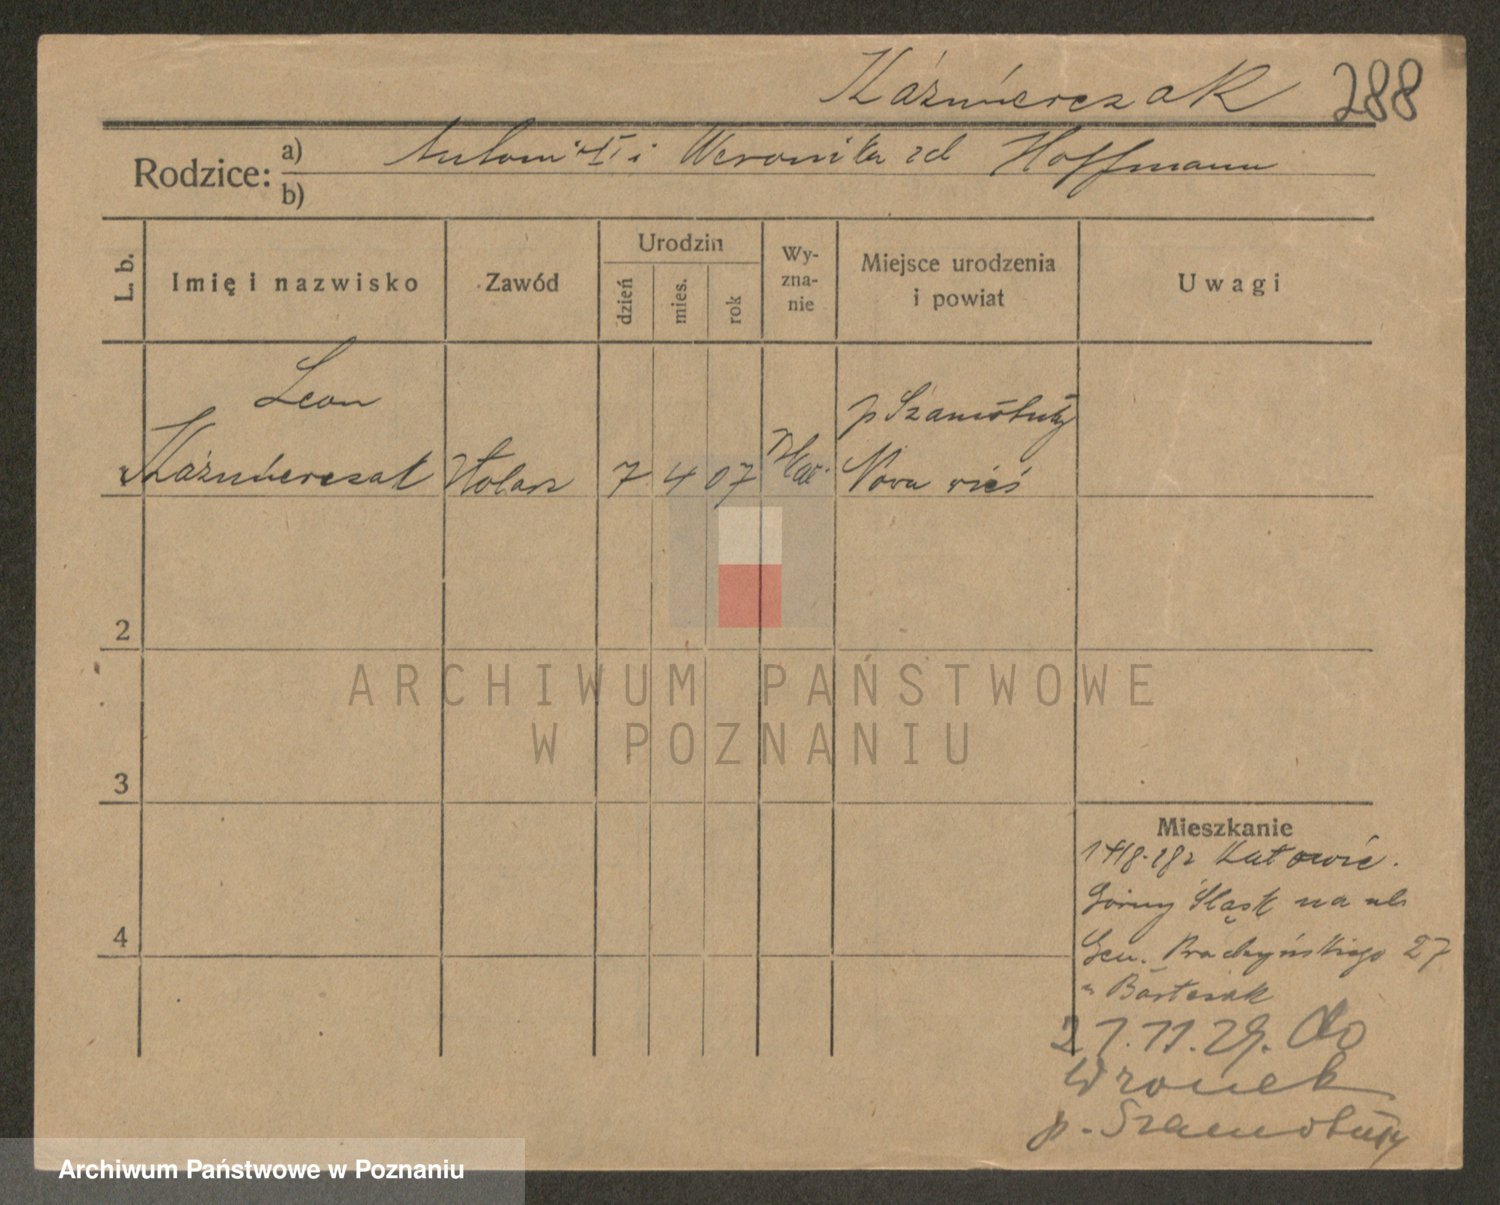 Kaźmierczak 288
Rodzice: a) Antoni i Weronika zd Hoffmann
b)
L. b.
Imię i nazwisko
Zawód
Urodzin
dzień
mies.
rok
Wy-
zna-
nie
Miejsce urodzenia
i powiat
Uwagi
Leon
Kaźmierczak
Stolarz
7
4
07
p Szamotuły
Nowa wieś
2
3
4
Mieszkanie
Katowic.
Górny Śląsk na ul.
Gen. 27
21.11.29. do
Wronek
p. Szamotuły
ARCHIWUM PAŃSTWOWE
W POZNANIU
Archiwum Państwowe w Poznaniu